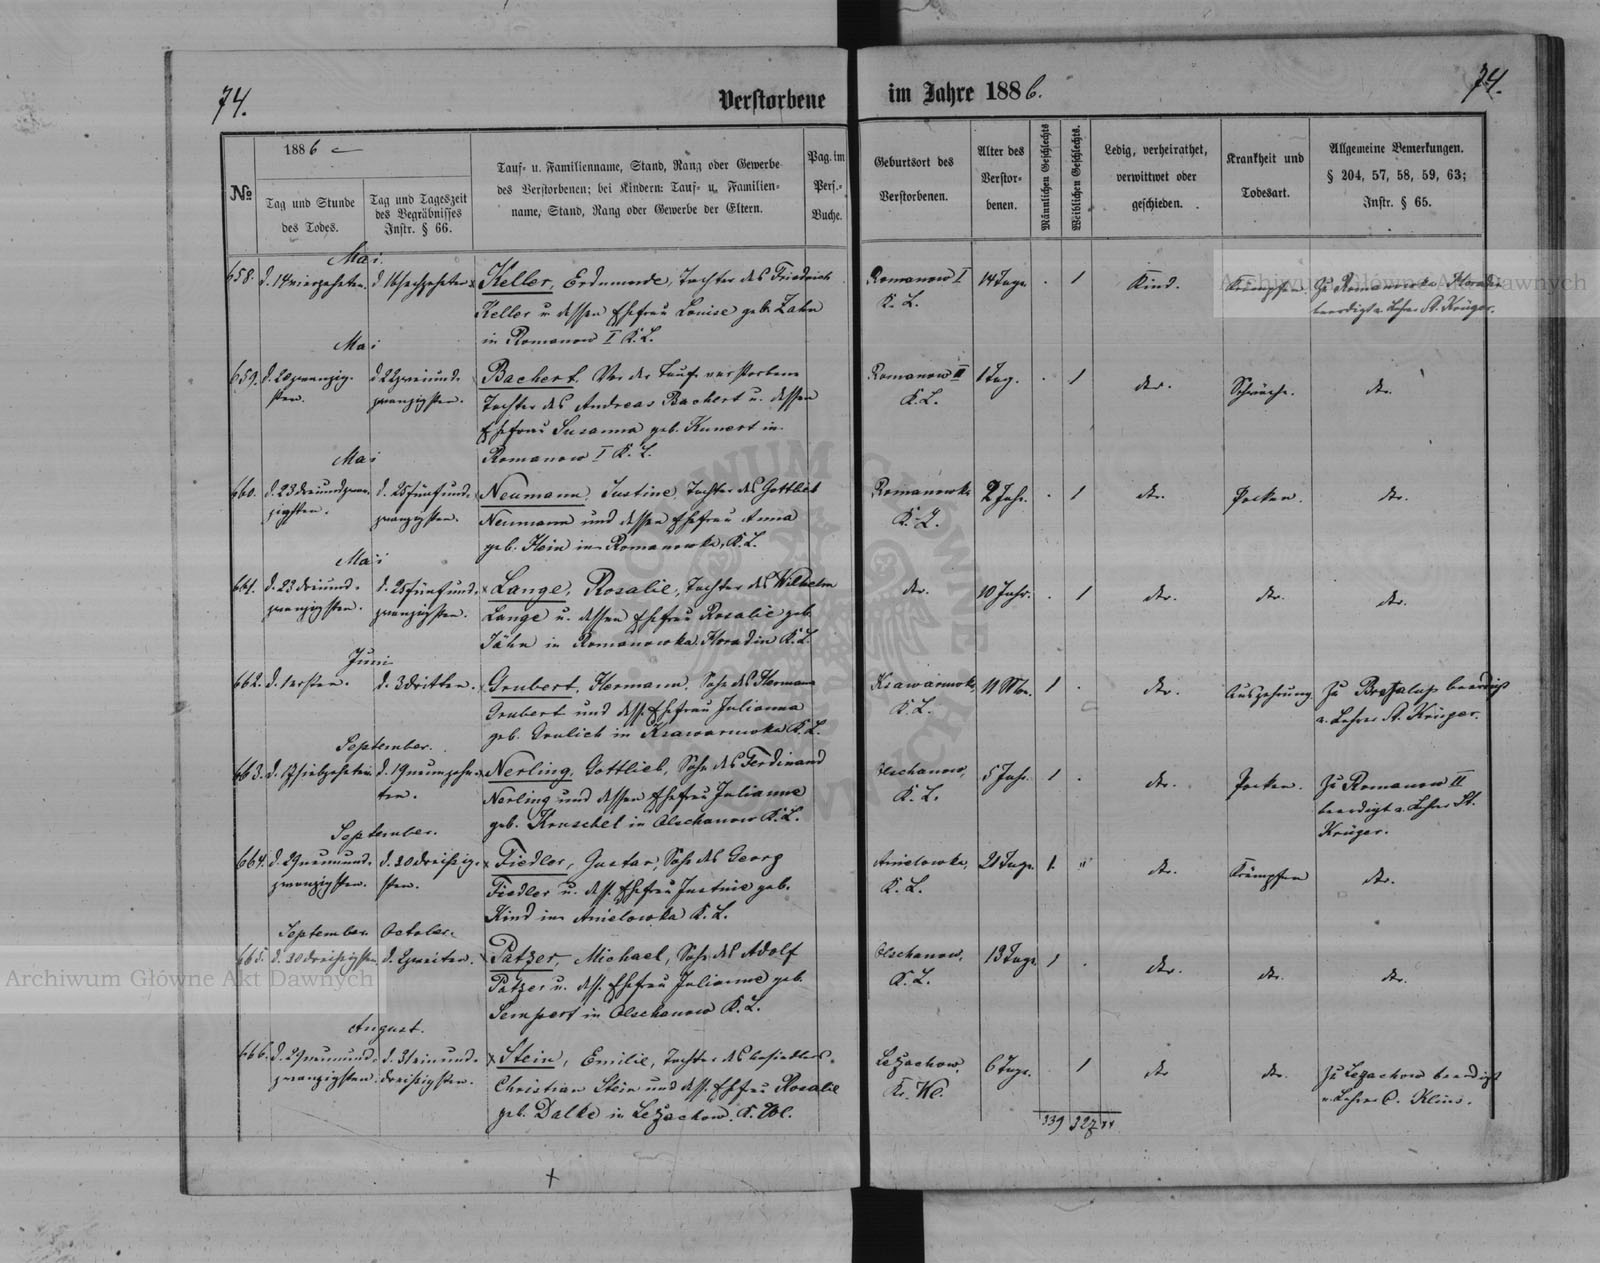 74.
Verstorbene
im Jahre 1886.
74.
№
1886
Tag und Stunde
des Todes.
Tag und Tageszeit
des Begräbnisses
Instr. § 66.
Tauf- u. Familienname, Stand, Rang oder Gewerbe
des Verstorbenen; bei Kindern: Tauf- u. Familien-
name, Stand, Rang oder Gewerbe der Eltern.
Pag. im
Pers.-
Buche.
Geburtsort des
Verstorbenen.
Alter des
Verstor-
benen.
Männlichen Geschlechts
Weiblichen Geschlechts.
Ledig, verheirathet,
verwittwet oder
geschieden.
Krankheit und
Todesart.
Allgemeine Bemerkungen.
§ 204, 57, 58, 59, 63;
Instr. § 65.
Mai
658. d. 14 vierzehnten. d 16 sechzehnten Keller, Erdmunde, Tochter des Friedrich
Keller u dessen Ehefrau Louise geb. Zahn
in Romanow I K. L.
Romanow I
K. L.
14 Tage . 1 Kind. Krämpfen
Zu Romanowka
beerdigt v. Lehrer A. Krüger.
Mai
659. d. 20 zwanzig-
sten.
d 22 zweiund-
zwanzigsten.
Bachert. Vor der Taufe verstorbene
Tochter des Andreas Bachert u. dessen
Ehefrau Susanna geb. Kunert in
Romanow I K. L.
Romanow II
K. L.
1 Tag. . 1 dto. Schwäche. dto.
Mai
660. d. 23 dreiundzwan-
zigsten.
d. 25 fünfund-
zwanzigsten.
Neumann, Justine, Tochter des Gottlieb
Neumann und dessen Ehefrau Anna
geb. Hein in Romanowka, K. L.
Romanowka
K. L.
2 Jahr. . 1 dto. Pocken. dto.
Mai
661. d. 23 dreiund-
zwanzigsten.
d. 25 fünfund-
zwanzigsten.
Lange, Rosalie, Tochter des Wilhelm
Lange u. dessen Ehefrau Rosalie geb.
Jähn in Romanowka K. L.
dto. 10 Jahr. . 1 dto. dto. dto.
Juni
662. d. 1 ersten. d. 3 dritten. Grubert, Hermann, Sohn des Hermann
Grubert und dess. Ehefrau Julianna
geb. Grulich in K. L.
K. L.
11 Mon. 1 . dto. Auszehrung
Zu beerdigt
v. Lehrer A. Krüger.
September.
663. d. 17 siebzehnten d. 19 neunzehn-
ten.
Nerling, Gottlieb, Sohn des Ferdinand
Nerling und dessen Ehefrau Julianne
geb. Kruschel in Olschanow K. L.
Olschanow,
K. L.
5 Jahr. 1 . dto. Pocken.
Zu Romanow II
beerdigt v. Lehrer A.
Krüger.
September.
664. d. 29 neunund-
zwanzigsten.
d. 30 dreißig-
sten.
Fiedler, Gustav, Sohn des Georg
Fiedler u. dess. Ehefrau Justine geb.
Kind in Anielowka K. L.
Anielowka,
K. L.
21 Tage 1. " dto. Krämpfen dto.
September. October.
665. d. 30 dreißigsten d. 2 zweiten. Patzer, Michael, Sohn des Adolf
Patzer u. dess. Ehefrau Julianne geb.
Sempert in Olschanow K. L.
Olschanow,
K. L.
13 Tage 1 . dto. dto. dto.
August.
666. d. 29 neunund-
zwanzigsten.
d. 31 einund-
dreißigsten.
Stein, Emilie, Tochter des
Christian Stein und dess. Ehefrau Rosalie
geb. Dalke in Lezachow. K. Wl.
Lezachow,
Kr. Wl.
6 Tage. . 1 dto dto.
Zu Lezachow beerdigt
v. Lehrer
339 327
Archiwum Główne Akt Dawnych
Archiwum Główne Akt Dawnych